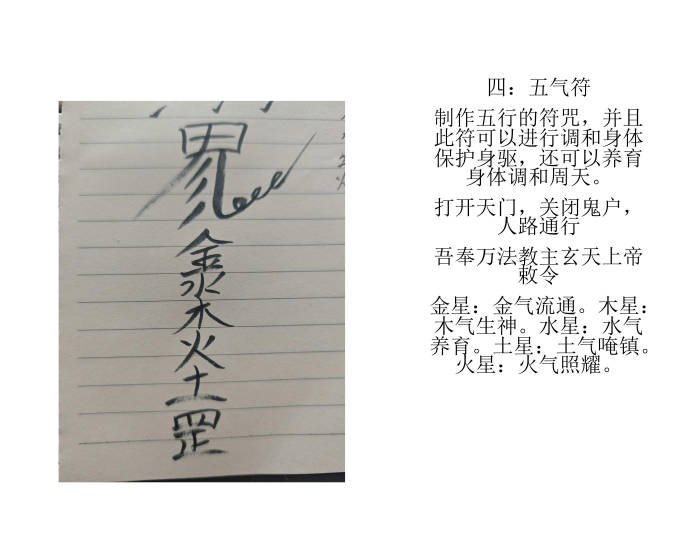 金
水
木
火
土
罡
四：五气符
制作五行的符咒，并且
此符可以进行调和身体
保护身驱，还可以养育
身体调和周天。
打开天门，关闭鬼户，
人路通行
吾奉万法教主玄天上帝
敕令
金星：金气流通。木星：
木气生神。水星：水气
养育。土星：土气唵镇。
火星：火气照耀。